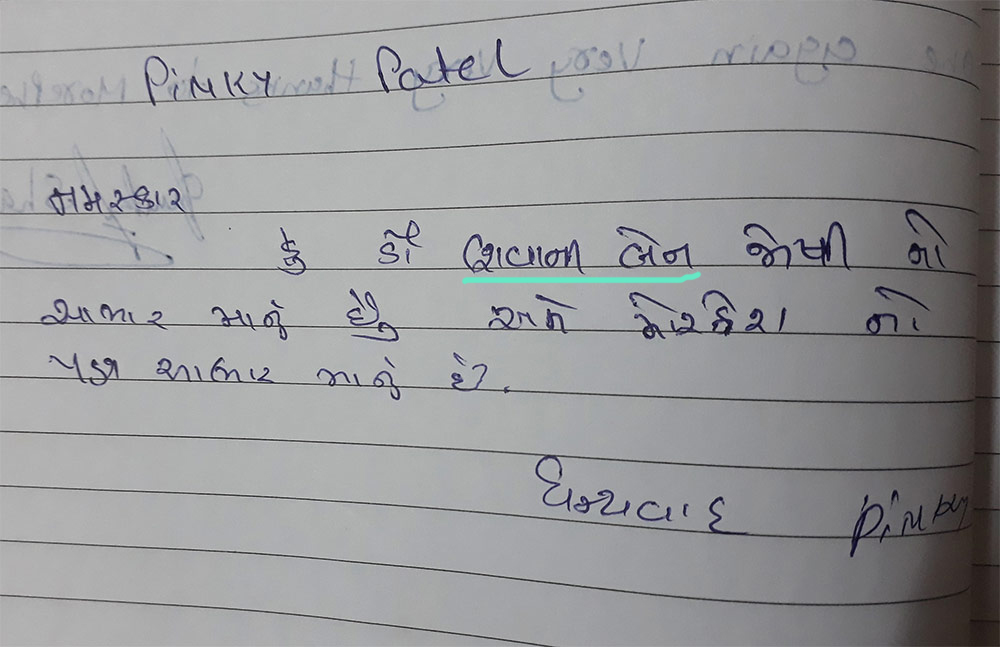 Pinky Patel
નમસ્કાર
હું ડૉ શિવાની બેન જોષી નો
આભાર માનું છું અને મોરકેશ નો
પણ આભાર માનું છું.
ધન્યવાદ Pinky